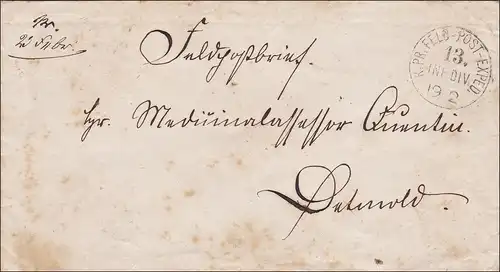 Pr.
22 Febr.
Feldpostbrief.
K. PR. FELD-POST-EXPED.
13.
INF. DIV.
19 2
Hr. Medicinalassessor Quentin.
Detmold.